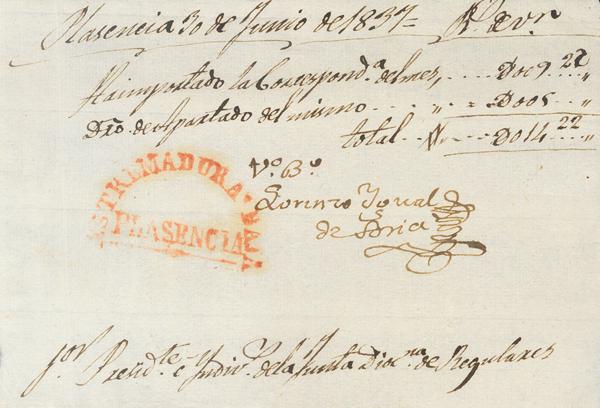 Plasencia 30 de Junio de 1837= Rs. Dvn.
Ha importado la Correspond.a del mes, .... Doo9..22
Dro. de Apartado del mismo .... „ .. Doo5 .. „
total .. N .... Do14..22
Vo. Bo.
Lorenzo Ygual
de Soria
ESTREMADURA BAJA
PLASENCIA
Sor. Presidte. é Yndivs. de la Junta Diocna. de Regulares